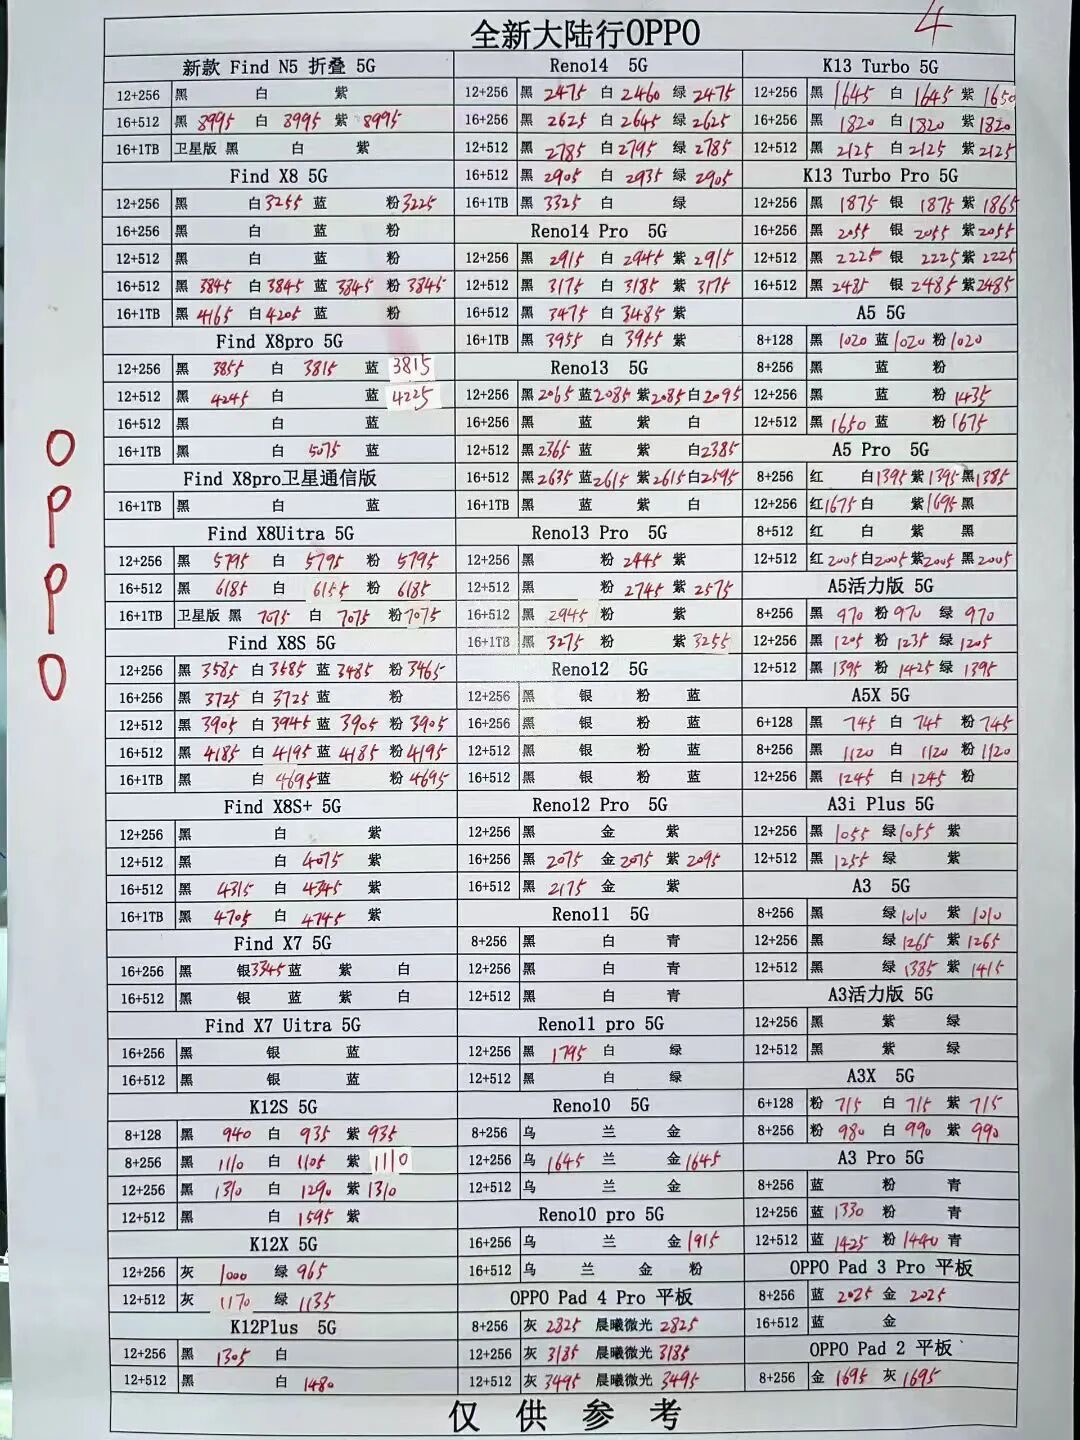 4
全新大陆行OPPO
O
P
P
O
新款 Find N5 折叠 5G
12+256 黑 白 紫
16+512 黑 8995 白 8995 紫 8995
16+1TB 卫星版 黑 白 紫
Find X8 5G
12+256 黑 白3255 蓝 粉3225
16+256 黑 白 蓝 粉
12+512 黑 白 蓝 粉
16+512 黑 3845 白 3845 蓝 3845 粉 3845
16+1TB 黑 4165 白 4205 蓝 粉
Find X8pro 5G
12+256 黑 3855 白 3815 蓝 3815
12+512 黑 4245 白 蓝 4225
16+512 黑 白 蓝
16+1TB 黑 白 5075 蓝
Find X8pro卫星通信版
16+1TB 黑 白 蓝
Find X8Uitra 5G
12+256 黑 5795 白 5795 粉 5795
16+512 黑 6185 白 6155 粉 6185
16+1TB 卫星版 黑 7075 白 7075 粉 7075
Find X8S 5G
12+256 黑 3585 白 3585 蓝 3485 粉 3465
16+256 黑 3725 白 3725 蓝 粉
12+512 黑 3905 白 3945 蓝 3905 粉 3905
16+512 黑 4185 白 4195 蓝 4185 粉 4195
16+1TB 黑 白 4695 蓝 粉 4695
Find X8S+ 5G
12+256 黑 白 紫
12+512 黑 白 4075 紫
16+512 黑 4315 白 4345 紫
16+1TB 黑 4705 白 4745 紫
Find X7 5G
16+256 黑 银3345 蓝 紫 白
16+512 黑 银 蓝 紫 白
Find X7 Uitra 5G
16+256 黑 银 蓝
16+512 黑 银 蓝
K12S 5G
8+128 黑 940 白 935 紫 935
8+256 黑 1110 白 1105 紫 1110
12+256 黑 1310 白 1290 紫 1310
12+512 黑 白 1595 紫
K12X 5G
12+256 灰 1000 绿 965
12+512 灰 1170 绿 1135
K12Plus 5G
12+256 黑 1305 白
12+512 黑 白 1480
Reno14 5G
12+256 黑 2475 白 2460 绿 2475
16+256 黑 2625 白 2645 绿 2625
12+512 黑 2785 白 2795 绿 2785
16+512 黑 2905 白 2935 绿 2905
16+1TB 黑 3325 白 绿
Reno14 Pro 5G
12+256 黑 2915 白 2945 紫 2915
12+512 黑 3175 白 3185 紫 3175
16+512 黑 3475 白 3485 紫
16+1TB 黑 3955 白 3955 紫
Reno13 5G
12+256 黑2065 蓝2085 紫2085 白2095
16+256 黑 蓝 紫 白
12+512 黑2365 蓝 紫 白2385
16+512 黑2635 蓝2615 紫2615 白2595
16+1TB 黑 蓝 紫 白
Reno13 Pro 5G
12+256 黑 粉 2445 紫
12+512 黑 粉 2745 紫 2575
16+512 黑 2945 粉 紫
16+1TB 黑 3275 粉 紫 3255
Reno12 5G
12+256 黑 银 粉 蓝
16+256 黑 银 粉 蓝
12+512 黑 银 粉 蓝
16+512 黑 银 粉 蓝
Reno12 Pro 5G
12+256 黑 金 紫
16+256 黑 2075 金 2075 紫 2095
16+512 黑 2175 金 紫
Reno11 5G
8+256 黑 白 青
12+256 黑 白 青
12+512 黑 白 青
Reno11 pro 5G
12+256 黑 1795 白 绿
12+512 黑 白 绿
Reno10 5G
8+256 乌 兰 金
12+256 乌 1645 兰 金 1645
12+512 乌 兰 金
Reno10 pro 5G
16+256 乌 兰 金 1915
16+512 乌 兰 金 粉
OPPO Pad 4 Pro 平板
8+256 灰 2825 晨曦微光 2825
12+256 灰 3185 晨曦微光 3185
12+512 灰 3495 晨曦微光 3495
K13 Turbo 5G
12+256 黑 1645 白 1645 紫 1650
16+256 黑 1820 白 1820 紫 1820
12+512 黑 2125 白 2125 紫 2125
K13 Turbo Pro 5G
12+256 黑 1875 银 1875 紫 1865
16+256 黑 2055 银 2055 紫 2055
12+512 黑 2225 银 2225 紫 2225
16+512 黑 2485 银 2485 紫 2485
A5 5G
8+128 黑 1020 蓝 1020 粉 1020
8+256 黑 蓝 粉
12+256 黑 蓝 粉 1435
12+512 黑 1650 蓝 粉 1675
A5 Pro 5G
8+256 红 白1395 紫1395 黑1385
12+256 红1675 白 紫1695 黑
8+512 红 白 紫 黑
12+512 红2005 白2005 紫2005 黑2005
A5活力版 5G
8+256 黑 970 粉 970 绿 970
12+256 黑 1205 粉 1235 绿 1205
12+512 黑 1395 粉 1425 绿 1395
A5X 5G
6+128 黑 745 白 745 粉 745
8+256 黑 1120 白 1120 粉 1120
12+256 黑 1245 白 1245 粉
A3i Plus 5G
12+256 黑 1055 绿 1055 紫
12+512 黑 1255 绿 紫
A3 5G
8+256 黑 绿 1010 紫 1010
12+256 黑 绿 1265 紫 1265
12+512 黑 绿 1385 紫 1415
A3活力版 5G
12+256 黑 紫 绿
12+512 黑 紫 绿
A3X 5G
6+128 粉 715 白 715 紫 715
8+256 粉 980 白 990 紫 990
A3 Pro 5G
8+256 蓝 粉 青
12+256 蓝 1330 粉 青
12+512 蓝 1425 粉 1440 青
OPPO Pad 3 Pro 平板
8+256 蓝 2025 金 2025
16+512 蓝 金
OPPO Pad 2 平板
8+256 金 1695 灰 1695
仅 供 参 考